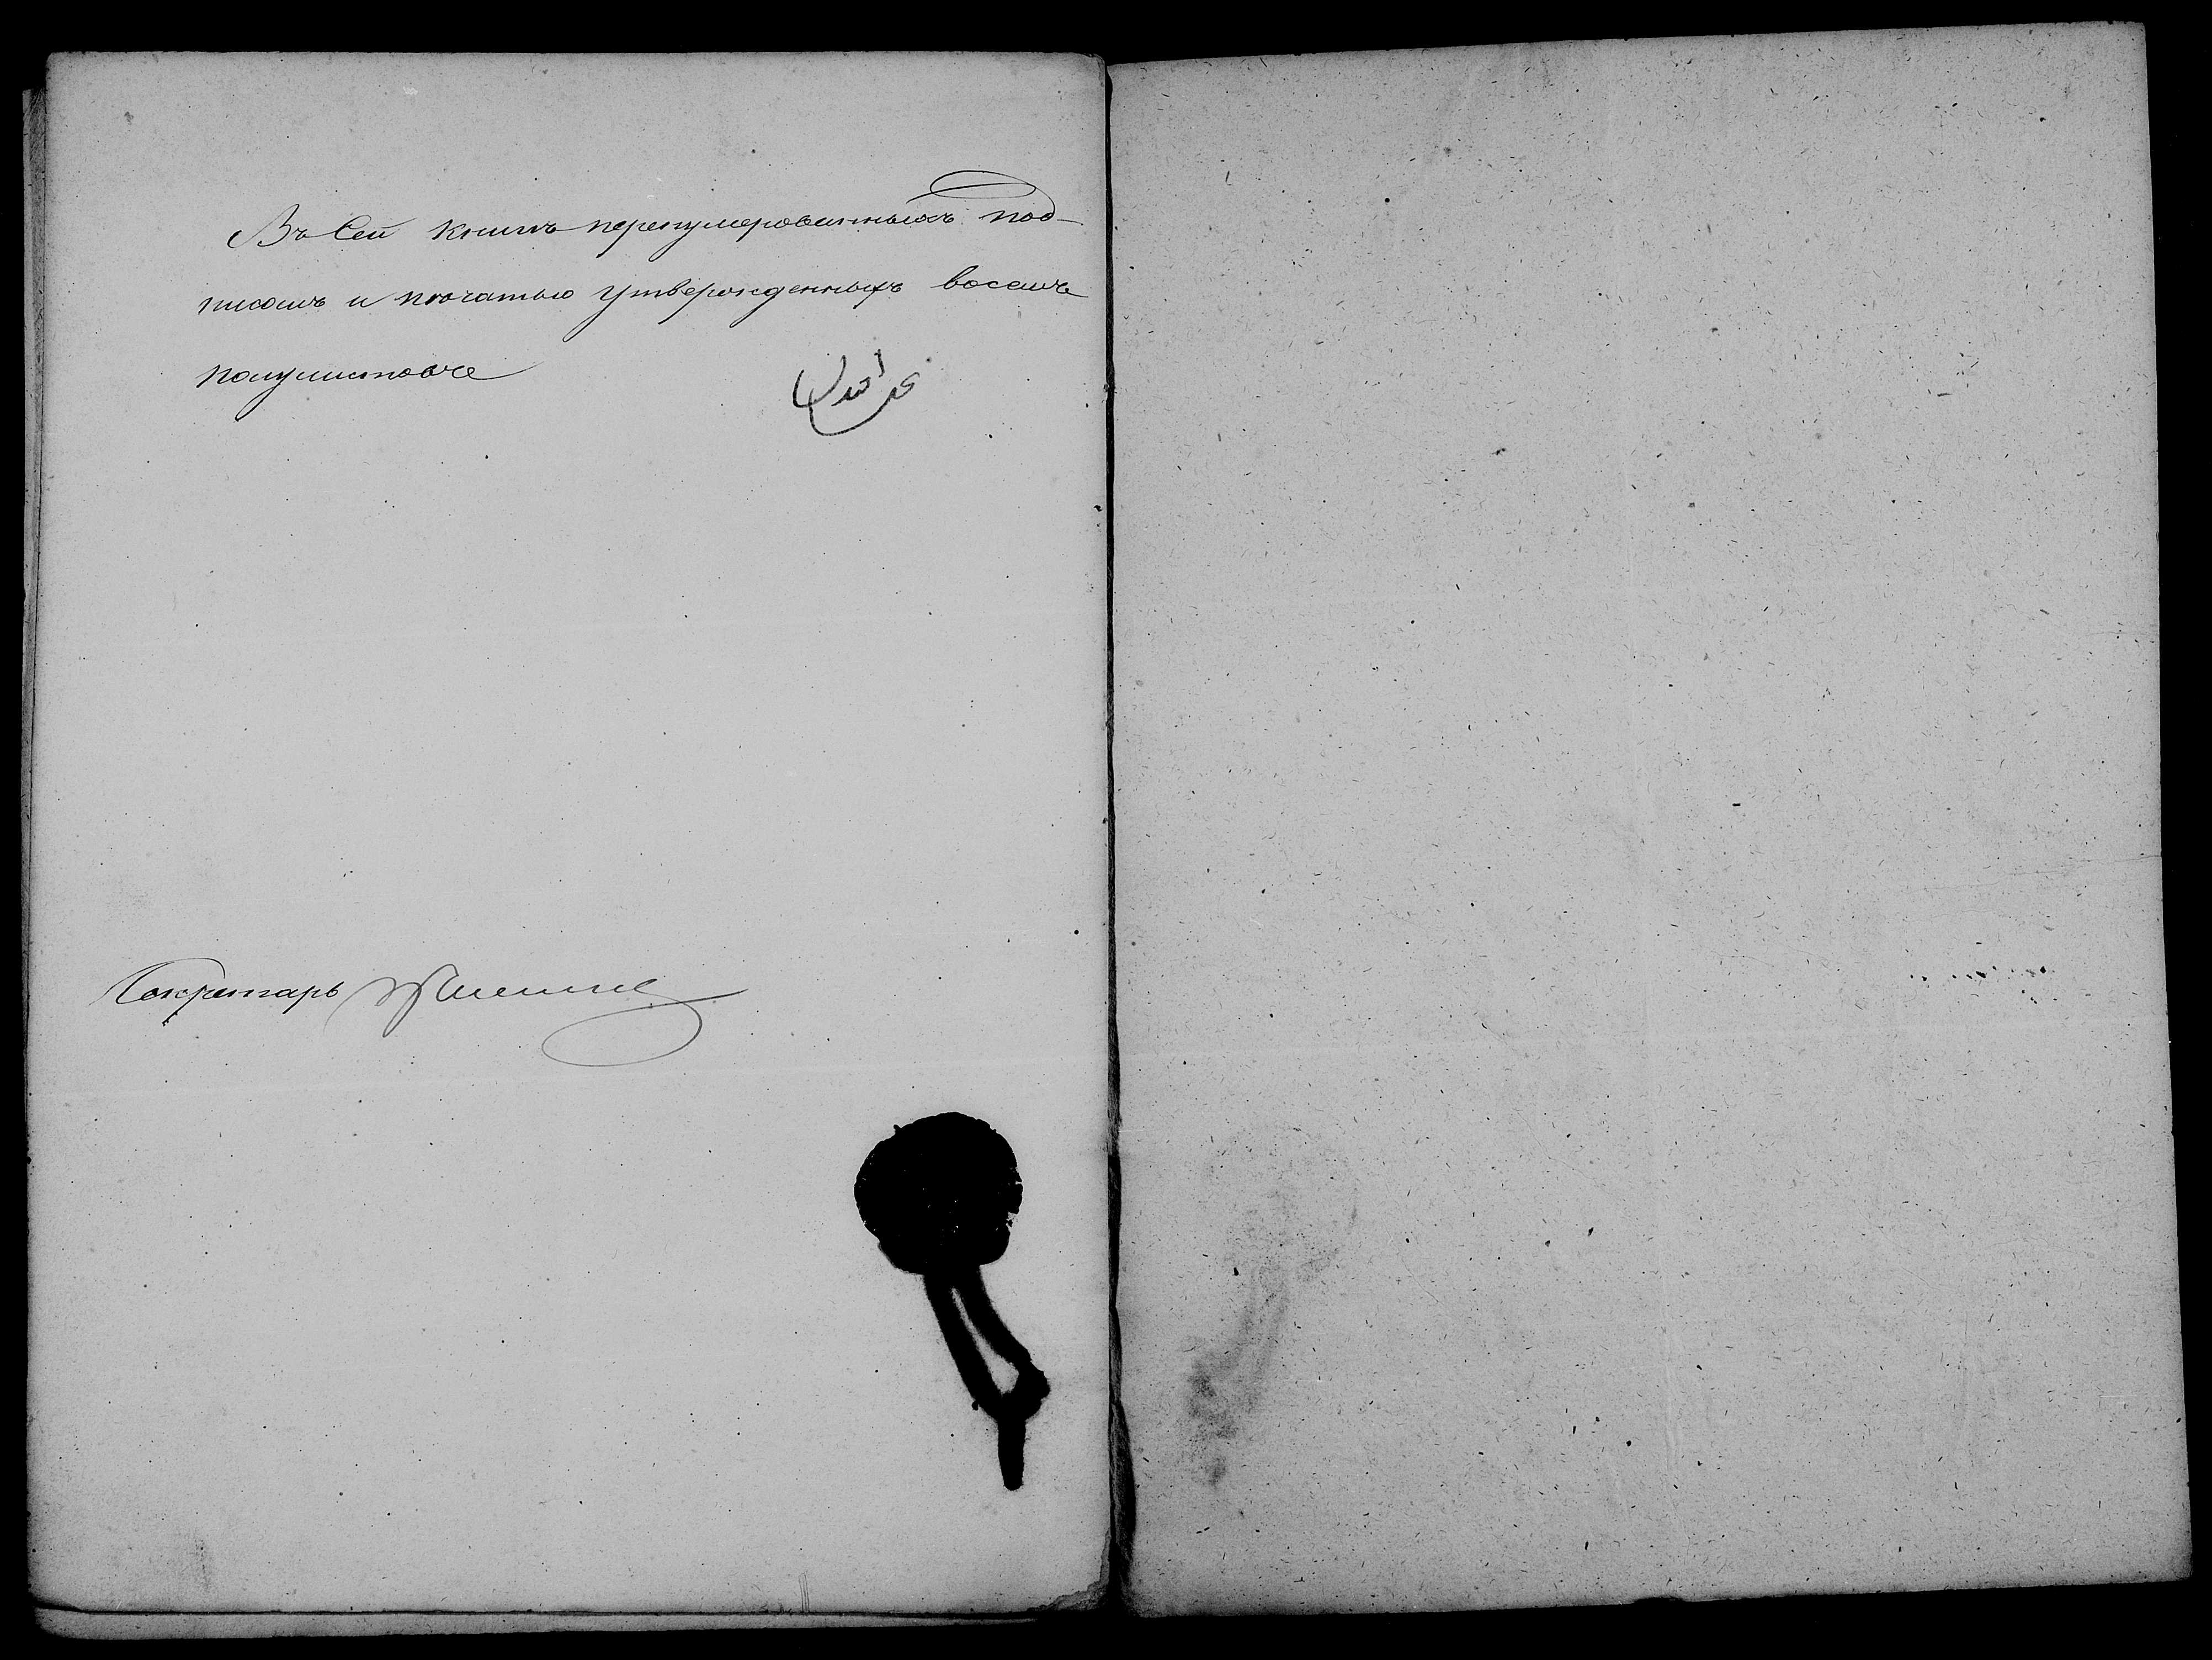 Въ Сей книгѣ перенумерованныхъ под-
писомъ и печатью утвержденныхъ восемь
полулистовъ
Секретарь